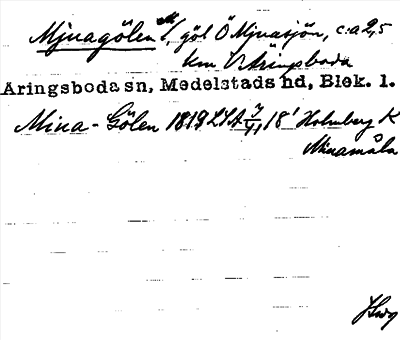 Mjnagölen M/, göl Ö Mjnasjön, c:a 2,5
km V Åringsboda
Aringsboda sn, Medelstads hd, Blek. l.
Mina-Gölen 1819 LSA 7/41, 18' Holmberg K
Minamåla